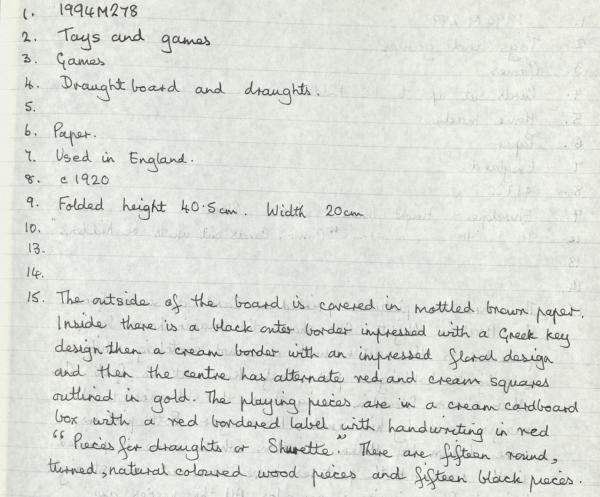 1. 1994M278
2. Toys and games
3. Games
4. Draught board and draughts.
5.
6. Paper.
7. Used in England.
8. c 1920
9. Folded height 40.5cm. Width 20cm
10.
13.
14.
15. The outside of the board is covered in mottled brown paper.
Inside there is a black outer border impressed with a Greek key
design then a cream border with an impressed floral design
and then the centre has alternate red and cream squares
outlined in gold. The playing pieces are in a cream cardboard
box with a red bordered label with handwriting in red
"Pieces for draughts or Shurette". There are fifteen round,
turned, natural coloured wood pieces and fifteen black pieces.